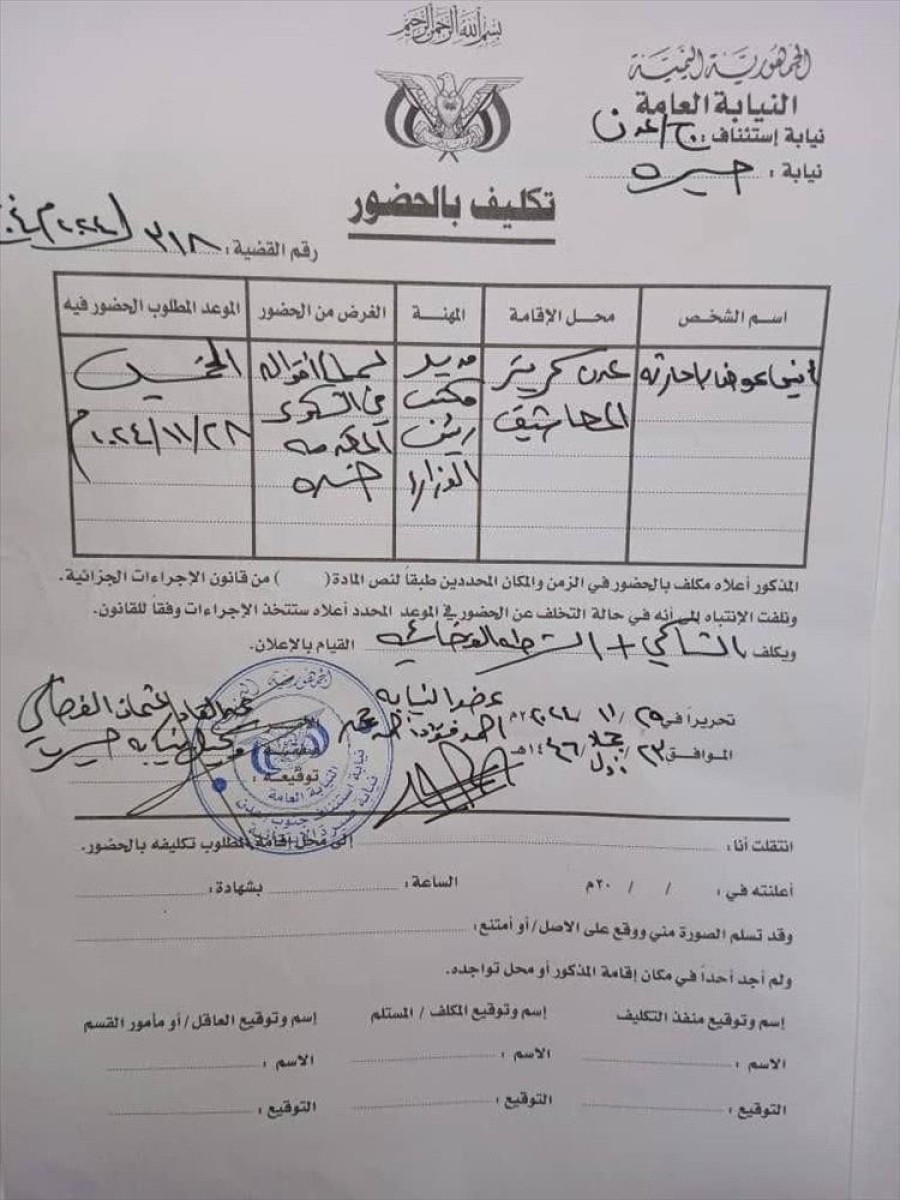 بسم الله الرحمن الرحيم
الجمهورية اليمنية
النيابة العامة
نيابة إستئناف : ج/عدن
نيابة : صيره
تكليف بالحضور
رقم القضية : ٣١٨ / ٢٠٢٤م
اسم الشخص
محل الإقامة
المهنة
الغرض من الحضور
الموعد المطلوب الحضور فيه
أنيس عوض باحارثه
عدن كريتر
المعاشيق
مدير
مكتب
رئيس
الوزراء
لسماع أقواله
في الشكوى
المقدمه
ضده
الخميس
٢٠٢٤/١١/٢٨م
المذكور أعلاه مكلف بالحضور في الزمن والمكان المحددين طبقاً لنص المادة( ) من قانون الإجراءات الجزائية.
وتلفت الإنتباه إلى أنه في حالة التخلف عن الحضور في الموعد المحدد أعلاه ستتخذ الإجراءات وفقاً للقانون.
ويكلف الشاكي + الشرطه القضائيه القيام بالإعلان.
تحريراً في ٢٥/ ١١/ ٢٠٢٤م
الموافق ٢٣/ جماد أول/ ١٤٤٦هـ
عضو النيابه
وكيل نيابه صيره
توقيعه :
النيابة العامة
نيابة استئناف جنوب عدن
انتقلت أنا : إلى محل إقامة المطلوب تكليفه بالحضور.
أعلنته في : / / ٢٠م الساعة : بشهادة :
وقد تسلم الصورة مني ووقع على الاصل/ أو أمتنع :
ولم أجد أحداً في مكان إقامة المذكور أو محل تواجده.
إسم وتوقيع منفذ التكليف
إسم وتوقيع المكلف / المستلم
إسم وتوقيع العاقل/ أو مأمور القسم
الاسم :
الاسم :
الاسم :
التوقيع :
التوقيع :
التوقيع :